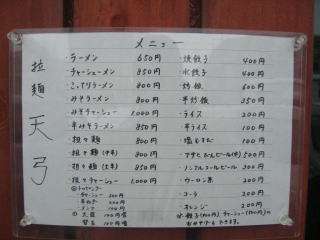 メニュー
拉麺 天弓
・ラーメン 650円
・チャーシューメン 850円
・こってりラーメン 800円
・みそラーメン 800円
・みそチャーシュー 1,000円
・辛みそラーメン 850円
・担々麺 800円
・担々麺(中辛) 800円
・担々麺(大辛) 850円
・担々チャーシュー 1,000円
◎トッピング
・チャーシュー 200円
・メンマ 100円
・焼餃子 400円
・水餃子 400円
・炒飯 600円
・半炒飯 350円
・ライス 200円
・半ライス 100円
・塩むすび 100円
・アサヒ生ビール(中) 500円
・ノンアルコールビール 300円
・ウーロン茶 200円
・コーラ 200円
・オレンジ 200円